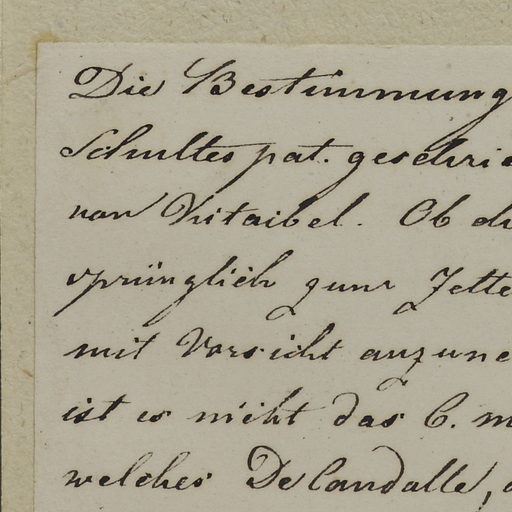 Die Bestimmung
Schultes pat. geschri
von Kitaibel. Ob di
sprünglich zum Zette
mit Vorsicht anzune
ist es nicht das C. m
welches De Candolle,